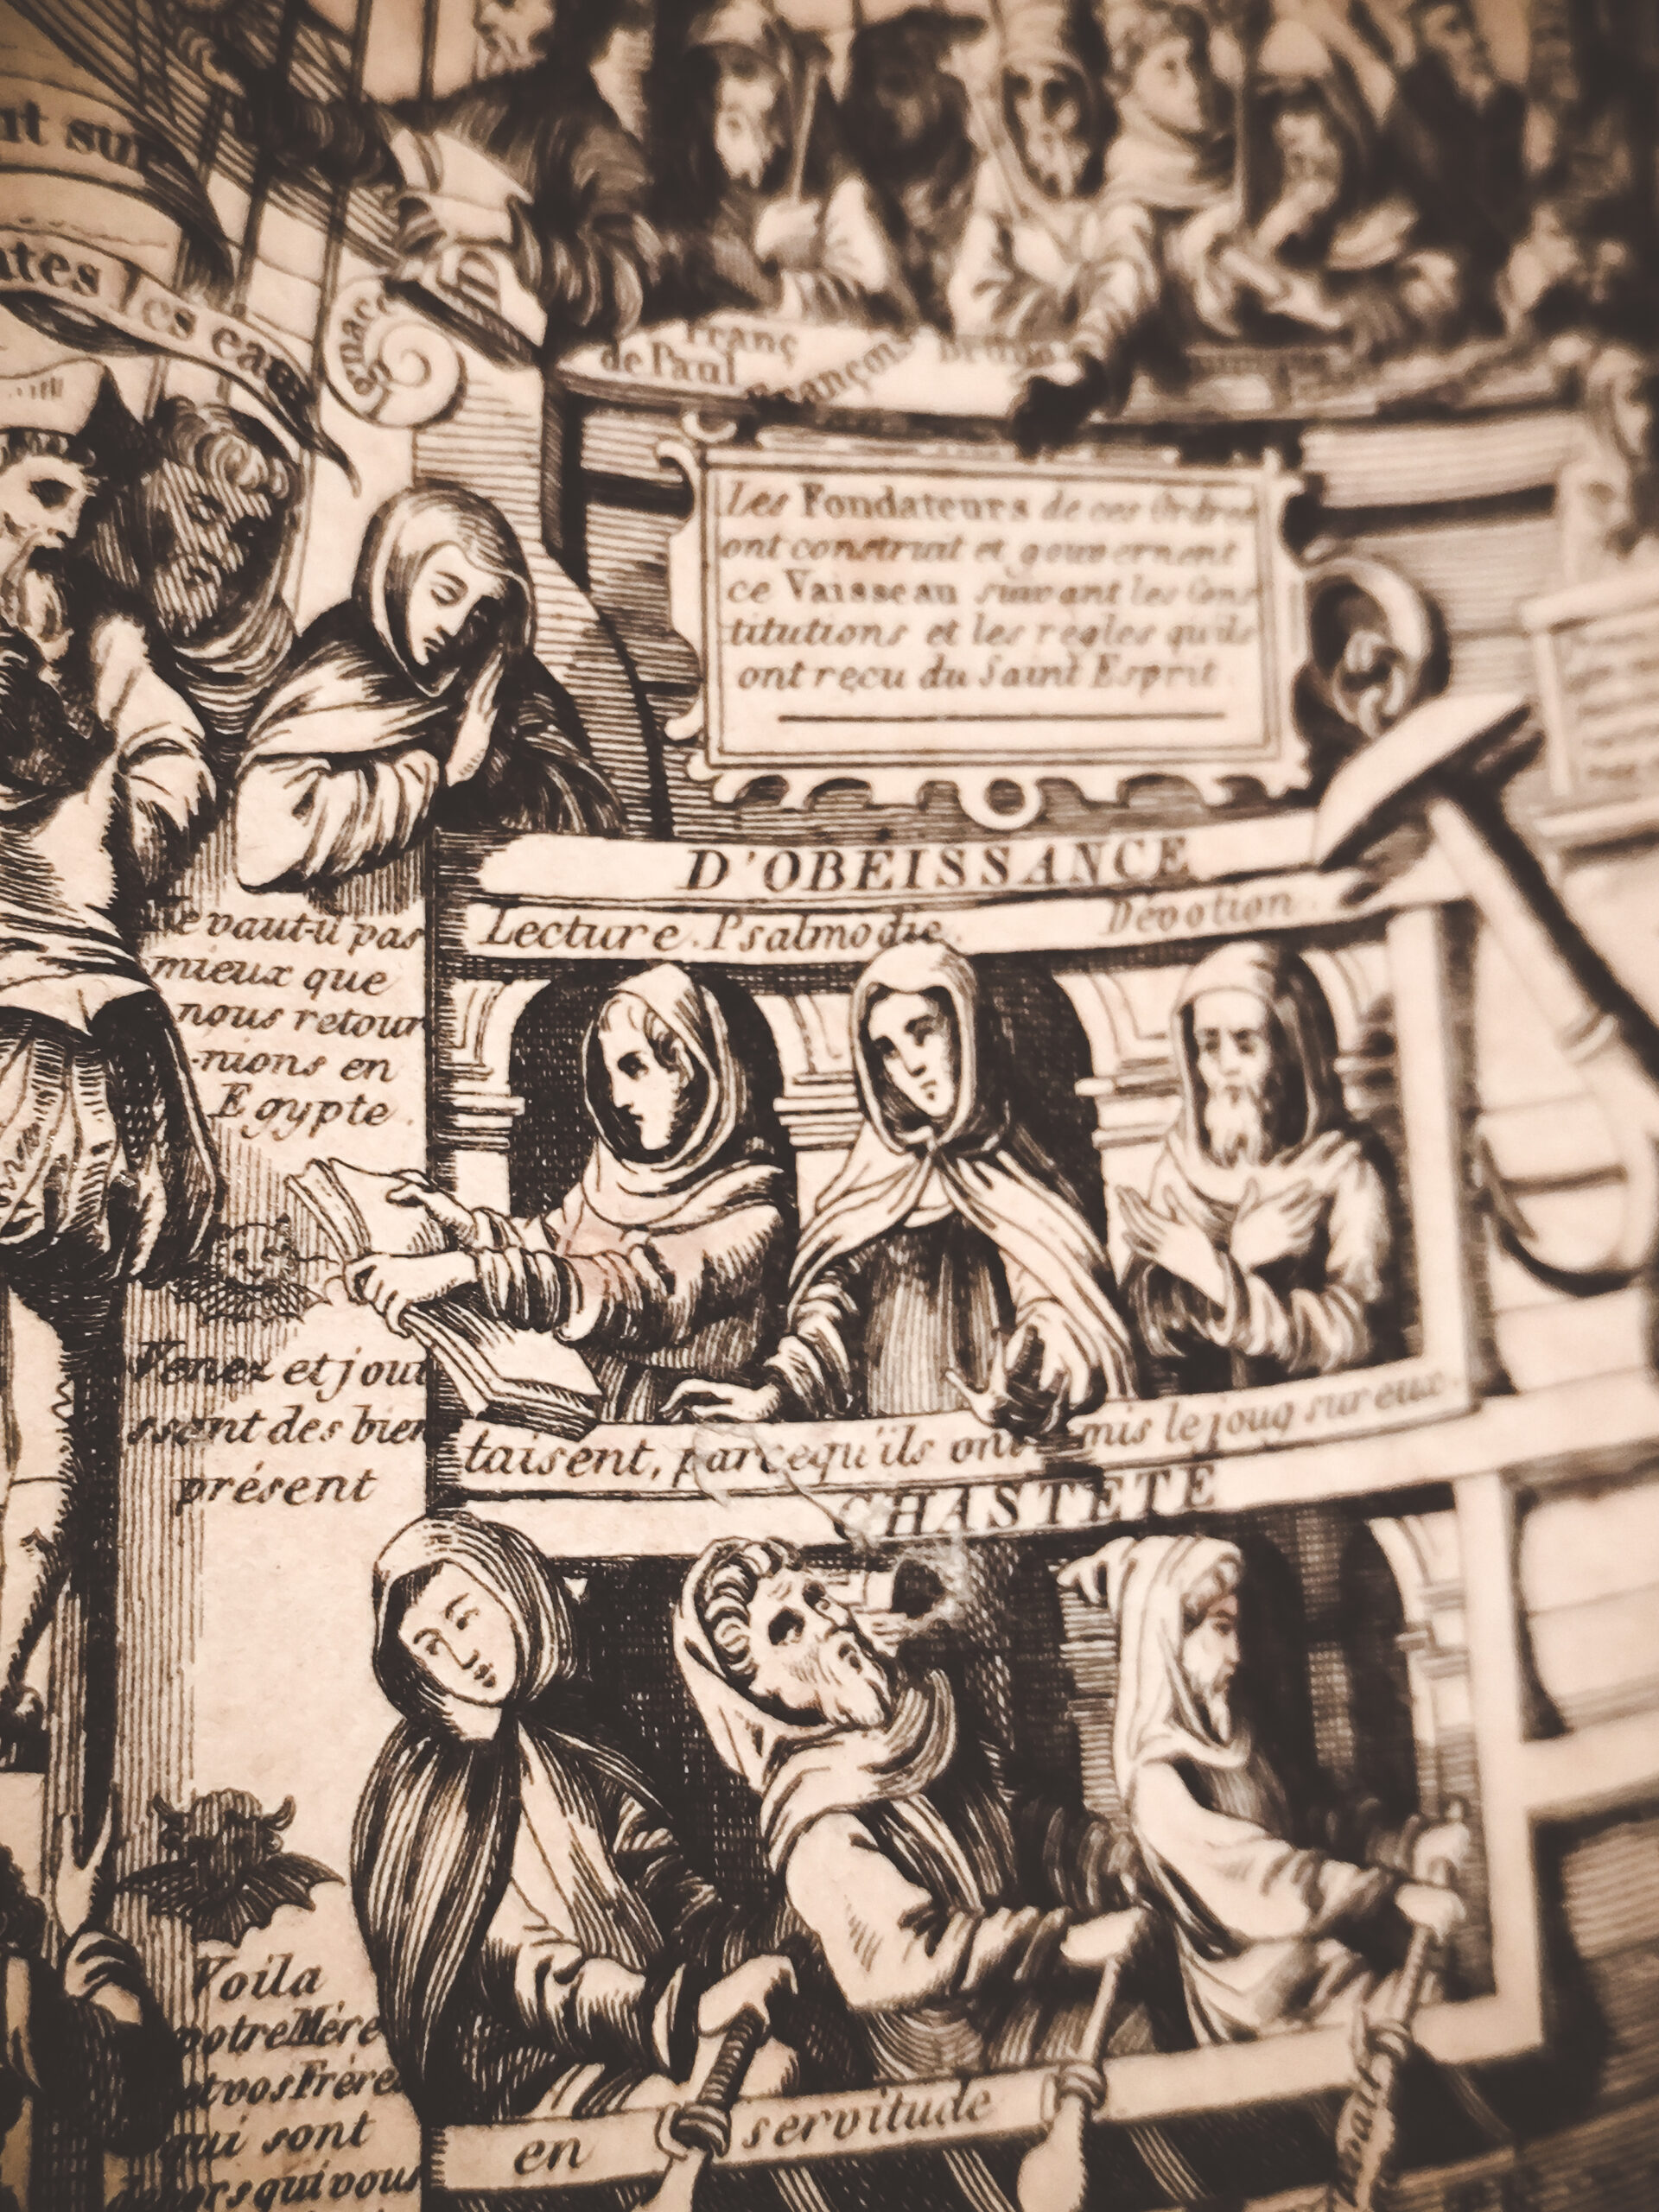 nt sur
ates les eaux
Franç
de Paul
François
Bruno
Les Fondateurs de ces Ordres
ont construit et gouvernent
ce Vaisseau suivant les Cons
titutions et les regles qu'ils
ont reçu du Saint Esprit.
D'OBEISSANCE
Lecture. Psalmodie. Dévotion.
e vaut-il pas
mieux que
nous retour
-nions en
Egypte.
Venez et joui
ssent des bien
présent
taisent, parcequ'ils ont mis le joug sur eux.
CHASTETE
Voila
votre Mère
et vos Frères
qui sont
dehors qui vous
en servitude